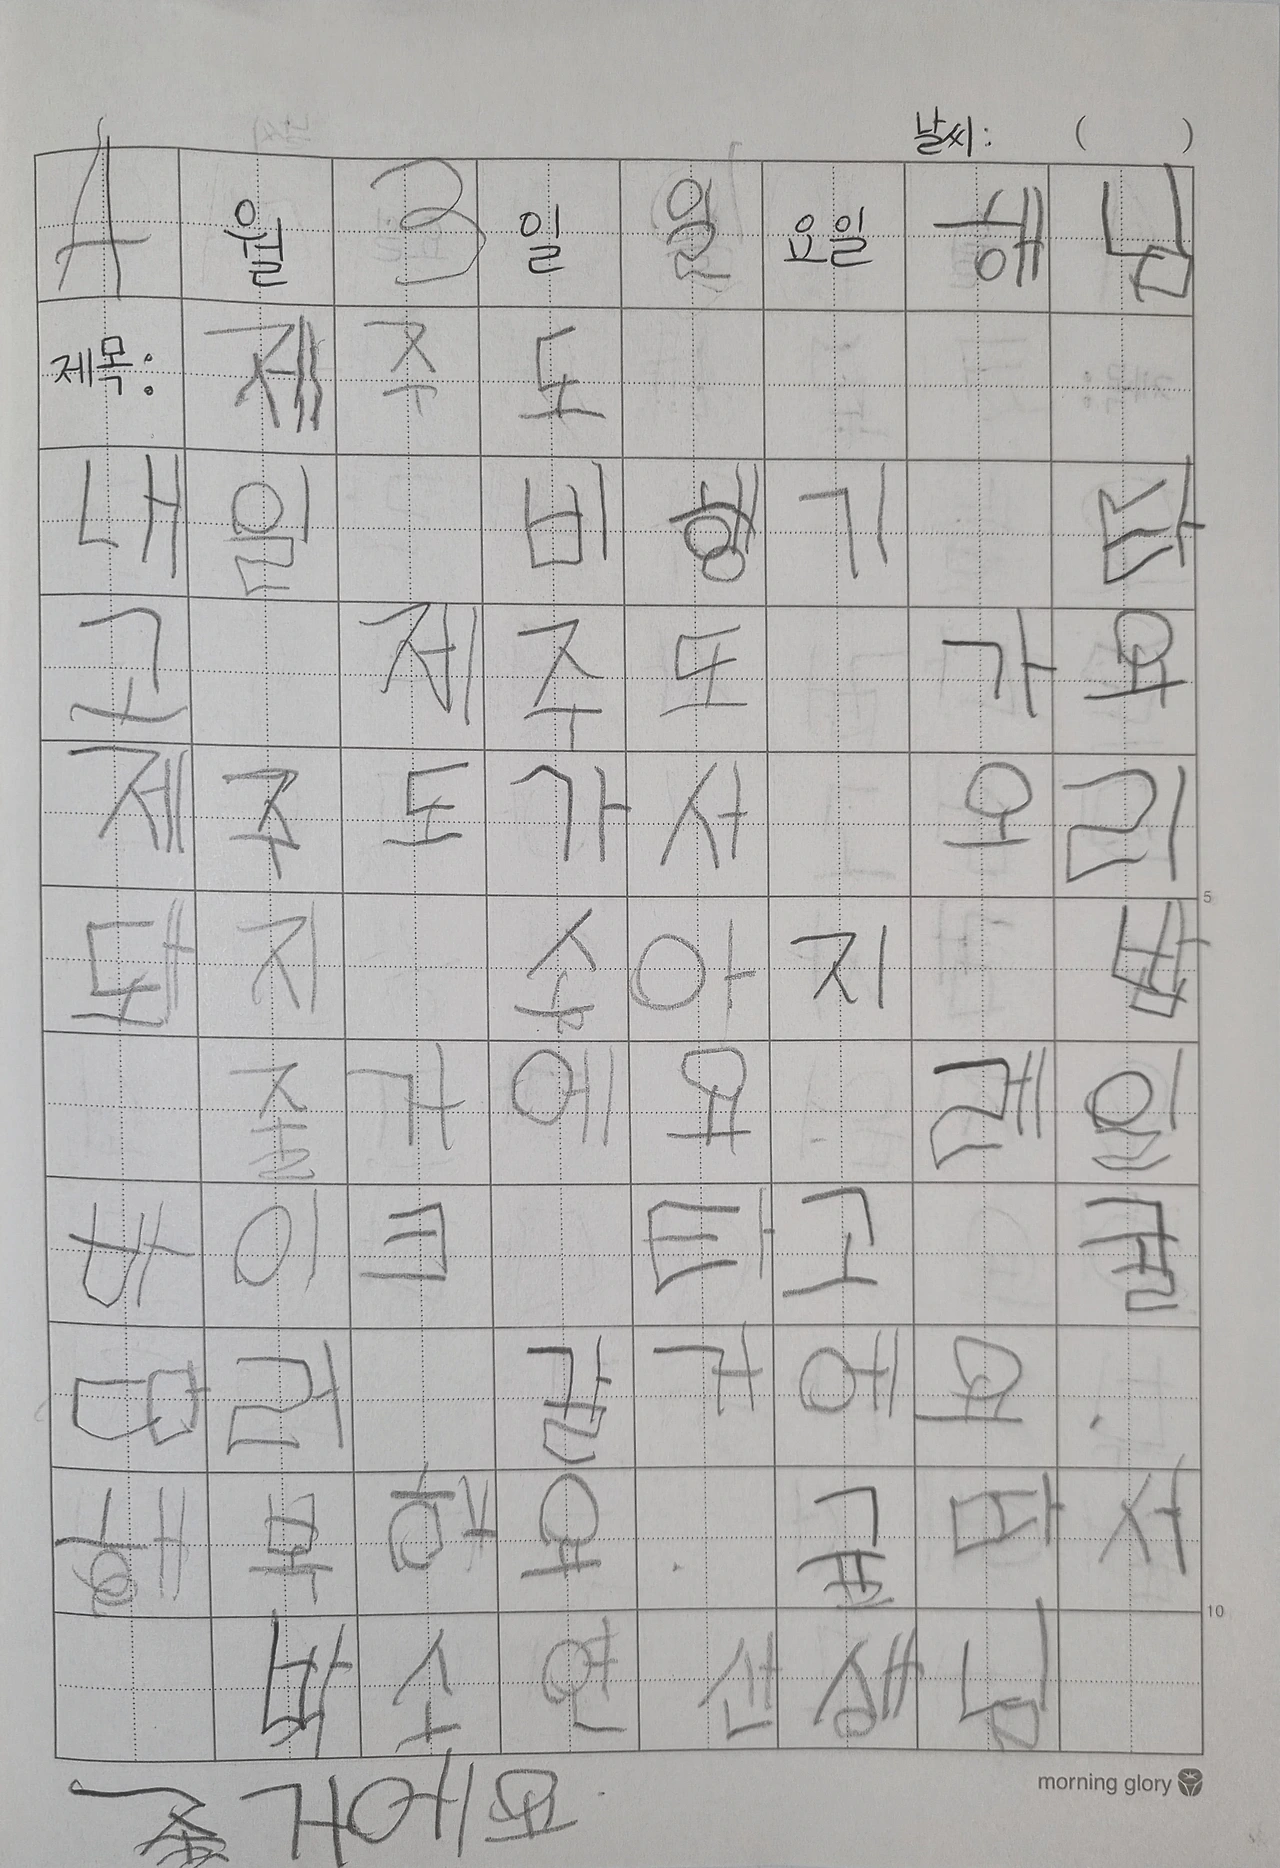 날씨: ( )
4월 3일 일요일 헤님
제목: 제주도
내일 비행기 타
고 제주도 가요
제주도가서 오리
돼지 송아지 밥
줄거에요 레일
바이크 타고 귤
따러 갈거에요.
행복해요. 귤따서
박소연 선생님
5
10
morning glory
줄거에요.